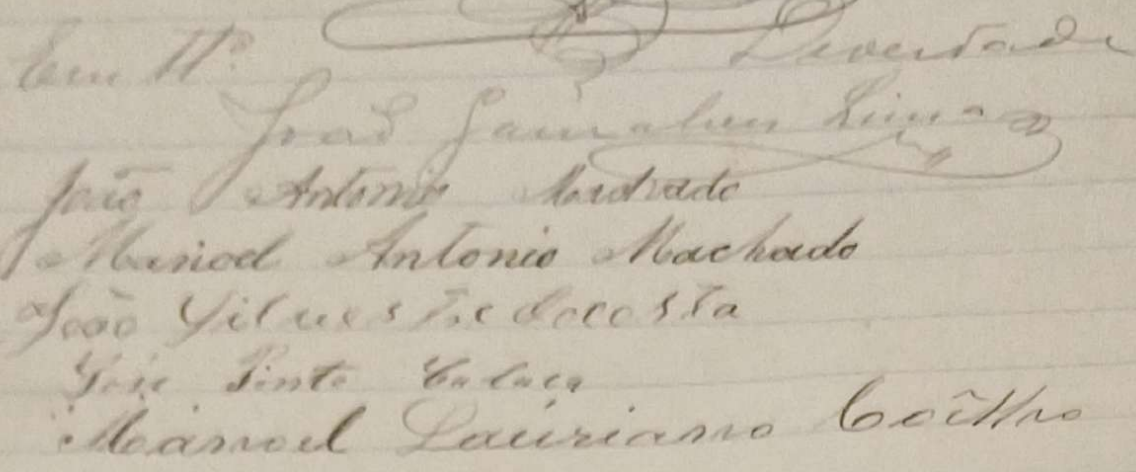 Em tt.º
João Gonsalves Lima
João Antonio Machado
Manoel Antonio Machado
João Silvestre dacosta
José Pinto
Manoel Lauriano Coêlho